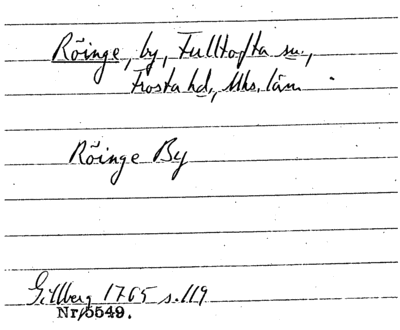 Röinge, by, Fulltofta sn.,
Frosta hd., Mhs. län.
Röinge By
Gillberg 1765 s. 119
Nr 5549.